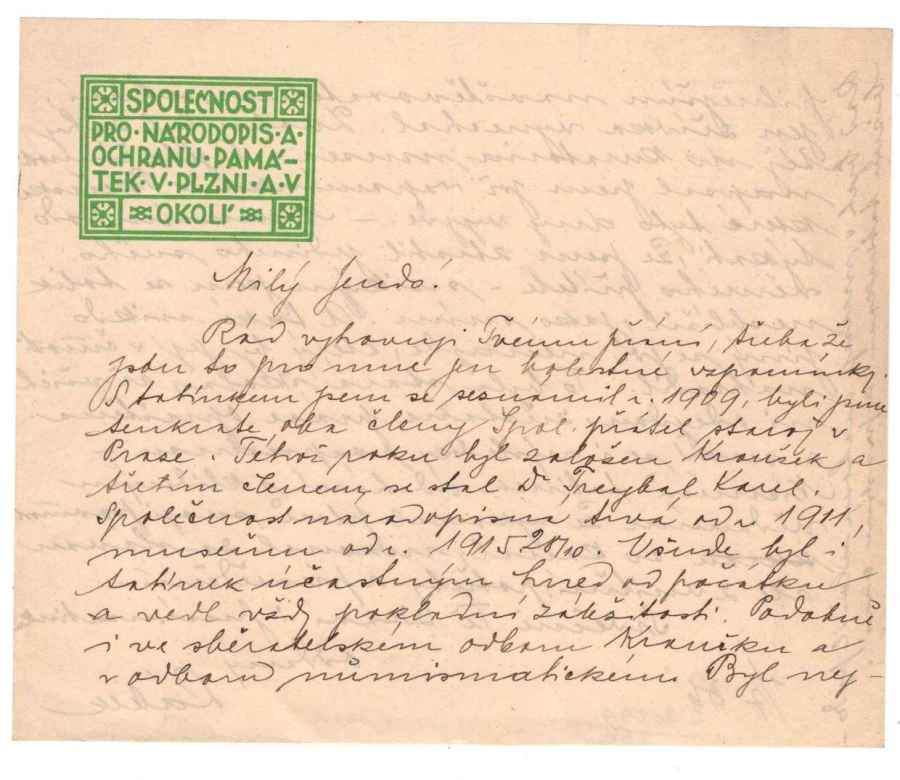 SPOLEČNOST
PRO·NÁRODOPIS·A·
OCHRANU·PAMÁ-
TEK·V·PLZNI·A·V
OKOLÍ
Milý Jendo!
Rád vyhovuji Tvému přání, třeba že
jsou to pro mne jen bolestné vzpomínky.
S tatínkem jsem se seznámil r. 1909, byli jsme
tenkráte oba členy Spol. přátel starož v
Praze. Téhož roku byl založen Kroužek a
třetím členem se stal Dr Treybal Karel.
Společnost narodopisná trvá od r. 1911,
museum od r. 1915 28/10. Všude byl i
tatínek účastným hned od počátku
a vedl vždy pokladní záležitosti. Podobně
i ve sběratelském odboru Kroužku a
v odboru numismatickém. Byl nej-